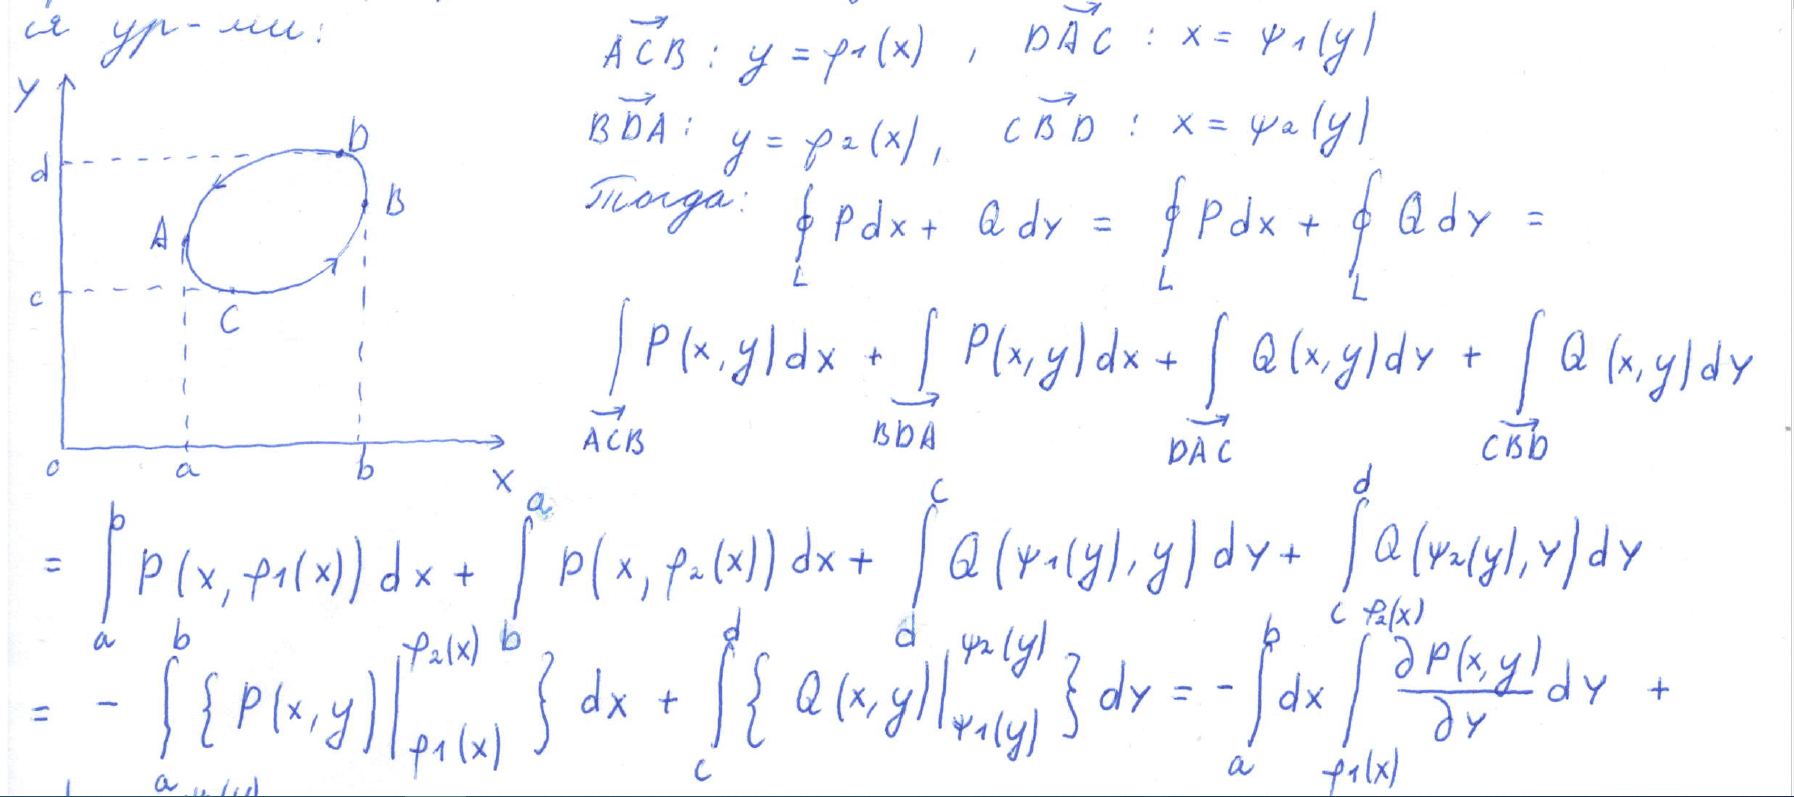 ся ур-ми:
A͞CB : y = φ1(x) , DAC : x = ψ1(y)
BDA : y = φ2(x), CBD : x = ψ2(y)
Тогда: ∮_L Pdx + Q dy = ∮_L Pdx + ∮_L Q dy =
∫_ACB P(x,y)dx + ∫_BDA P(x,y)dx + ∫_DAC Q(x,y)dy + ∫_CBD Q(x,y)dy
= ∫_a^b P(x, φ1(x)) dx + ∫_b^a P(x, φ2(x)) dx + ∫_d^c Q(ψ1(y), y) dy + ∫_c^d Q(ψ2(y), y) dy
= - ∫_a^b { P(x,y)|_φ1(x)^φ2(x) } dx + ∫_c^d { Q(x,y)|_ψ1(y)^ψ2(y) } dy = - ∫_a^b dx ∫_φ1(x)^φ2(x) ∂P(x,y)/∂y dy +
y
d
D
B
A
c
C
0
a
b
x